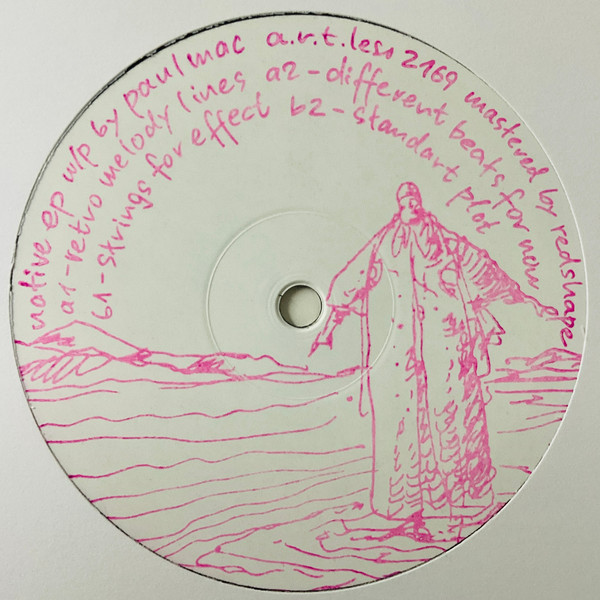 native ep w/p by paul mac a.r.t.less 2169 mastered by redshape
a1-retro melody lines a2-different beats for now
b1-strings for effect b2-standart plot